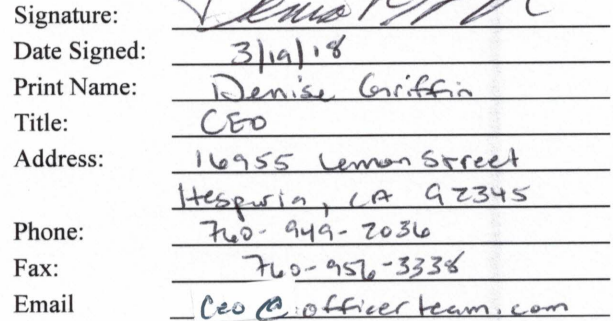 Signature:
Date Signed: 3/19/18
Print Name: Denise Griffin
Title: CEO
Address: 16955 Lemon Street
Hesperia, CA 92345
Phone: 760-949-2036
Fax: 760-956-3338
Email ceo@officerteam.com